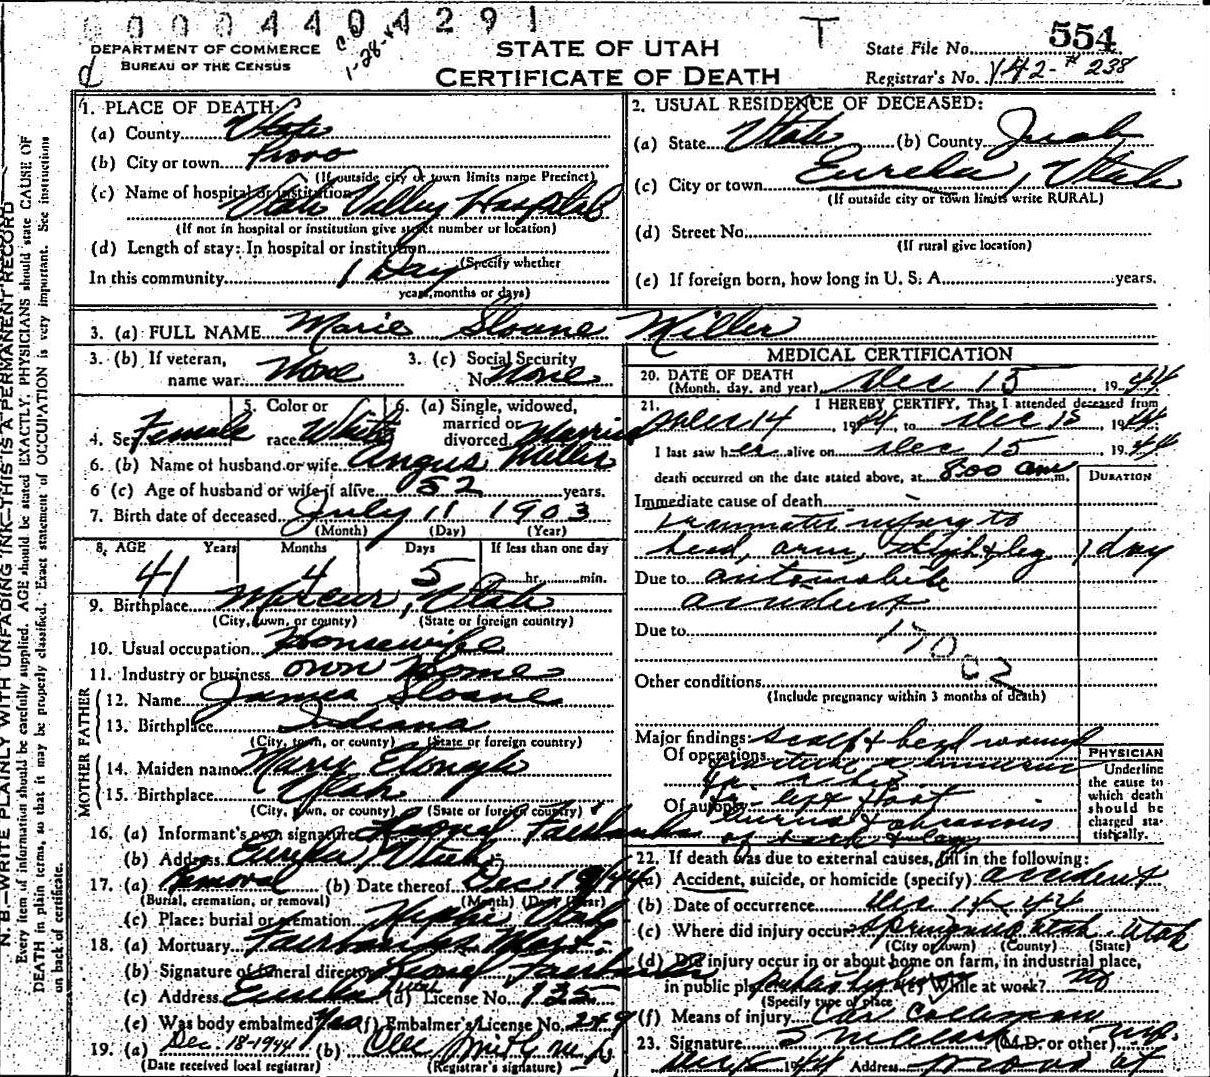 00004404291
T
DEPARTMENT OF COMMERCE
BUREAU OF THE CENSUS
STATE OF UTAH
CERTIFICATE OF DEATH
State File No. 554
Registrar's No. 142-#238
1. PLACE OF DEATH:
(a) County Utah
(b) City or town Provo
(If outside city or town limits name Precinct)
(c) Name of hospital or institution
Utah Valley Hospital
(If not in hospital or institution give street number or location)
(d) Length of stay: In hospital or institution
(Specify whether
In this community 1 Day
years, months or days)
2. USUAL RESIDENCE OF DECEASED:
(a) State Utah (b) County Juab
(c) City or town Eureka, Utah
(If outside city or town limits write RURAL)
(d) Street No.
(If rural give location)
(e) If foreign born, how long in U. S. A. years.
3. (a) FULL NAME Marie Sloane Miller
3. (b) If veteran, name war None
3. (c) Social Security No. None
4. Sex Female
5. Color or race White
6. (a) Single, widowed, married or divorced Married
6. (b) Name of husband or wife Angus Miller
6 (c) Age of husband or wife if alive 52 years.
7. Birth date of deceased July 11 1903
(Month) (Day) (Year)
8. AGE Years Months Days If less than one day
41 4 5 hr. min.
9. Birthplace Mercur, Utah
(City, town, or county) (State or foreign country)
10. Usual occupation Housewife
11. Industry or business own Home
FATHER
12. Name James Sloane
13. Birthplace Indiana
(City, town, or county) (State or foreign country)
MOTHER
14. Maiden name Mary
15. Birthplace Utah
(City, town, or county) (State or foreign country)
16. (a) Informant's own signature Leonel Fairbanks
(b) Address Eureka, Utah
17. (a) Removal (b) Date thereof Dec 19/44
(Burial, cremation, or removal) (Month) (Day) (Year)
(c) Place: burial or cremation Nephi Utah
18. (a) Mortuary Fairbanks Mort.
(b) Signature of funeral director Leonel Fairbanks
(c) Address Eureka Utah (d) License No. 135
(e) Was body embalmed? Yes (f) Embalmer's License No. 249
19. (a) Dec. 18-1944 (b)
(Date received local registrar) (Registrar's signature)
MEDICAL CERTIFICATION
20. DATE OF DEATH
(Month, day, and year) Dec 15, 1944
21. I HEREBY CERTIFY, That I attended deceased from
Dec 14, 1944, to Dec 15, 1944
I last saw her alive on Dec 15 1944
death occurred on the date stated above, at 8:00 am m.
DURATION
Immediate cause of death
traumatic injury to
head, arm, thigh & leg 1 day
Due to automobile
accident
Due to
170 C2
Other conditions
(Include pregnancy within 3 months of death)
Major findings: scalp & head wound
Of operations
Of autopsy left foot
PHYSICIAN
Underline the cause to which death should be charged statistically.
22. If death was due to external causes, fill in the following:
(a) Accident, suicide, or homicide (specify) accident
(b) Date of occurrence Dec 14-44
(c) Where did injury occur? Utah Utah
(City or town) (County) (State)
(d) Did injury occur in or about home on farm, in industrial place,
in public place? public highway (e) While at work? no
(Specify type of place)
(f) Means of injury Car Collision
23. Signature (M.D. or other) M.D.
1944 Address Provo Ut
N. B.—WRITE PLAINLY WITH UNFADING INK—THIS IS A PERMANENT RECORD
Every item of information should be carefully supplied. AGE should be stated EXACTLY. PHYSICIANS should state CAUSE OF
DEATH in plain terms, so that it may be properly classified. Exact statement of OCCUPATION is very important. See instructions
on back of certificate.